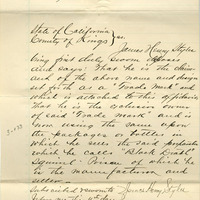 State of California
County of Kings } ss.
James Henry Styles
being first duly sworn deposes
and says: That he is the owner
of the above name and design
set forth as a "Trade mark" and
which is attached to this affidavit
that he is the exclusive owner
of said "Trade mark" and is
now using the same upon
the packages or bottles in
which he sells the said preparation
which he calls "Black
Squirrel" of which he
is the manufacturer
and seller.
Subscribed and sworn to James Henry Styles